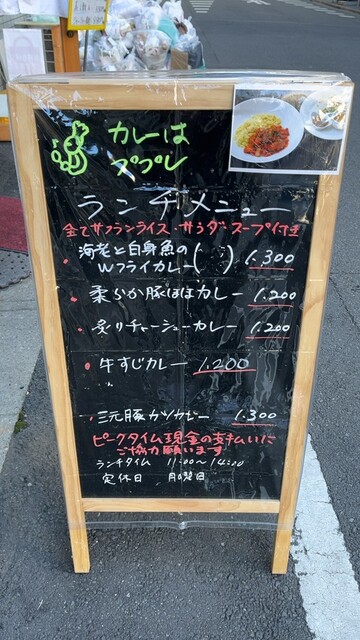 カレーは
ププレ
ランチメニュー
全てサフランライス・サラダスープ付き
海老と白身魚の
Wフライカレー( ) 1,300
柔らか豚ほほカレー 1,200
炙りチャーシューカレー 1,200
牛すじカレー 1,200
三元豚カツカレー 1,300
ピークタイム現金の支払いに
ご協力願います
ランチタイム 11:00〜14:00
定休日 月曜日